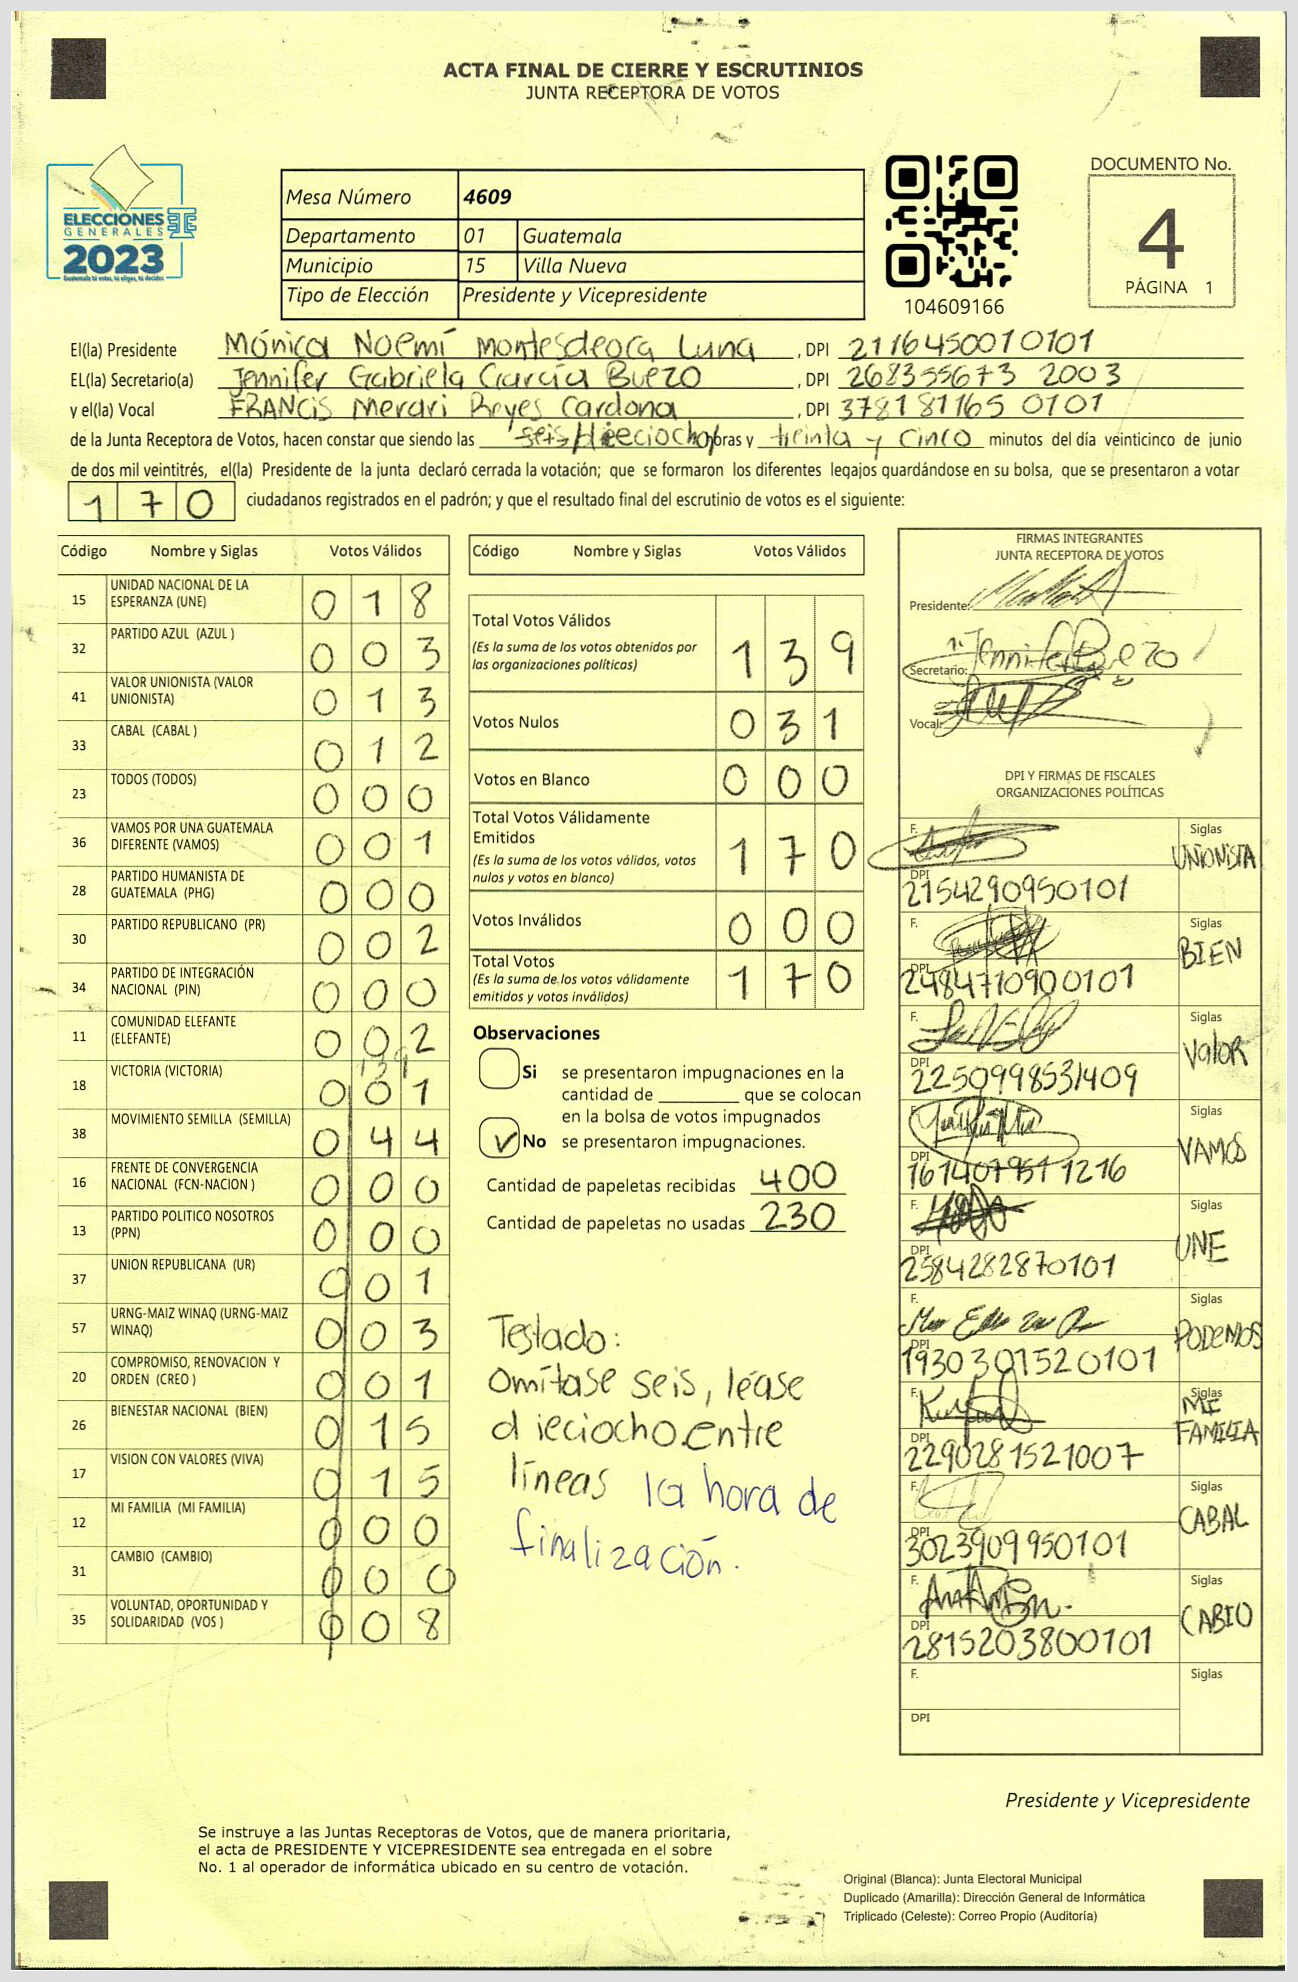 ACTA FINAL DE CIERRE Y ESCRUTINIOS
JUNTA RECEPTORA DE VOTOS
ELECCIONES
GENERALES
2023
Guatemala tú votas, tú eliges, tú decides
Mesa Número 4609
Departamento 01 Guatemala
Municipio 15 Villa Nueva
Tipo de Elección Presidente y Vicepresidente
104609166
DOCUMENTO No.
4
PÁGINA 1
El(la) Presidente Mónica Noemí Montesdeoca Luna , DPI 2116450010101
EL(la) Secretario(a) Jennifer Gabriela García Buezo , DPI 268355673 2003
y el(la) Vocal FRANCIS Merari Reyes Cardona , DPI 378181165 0101
de la Junta Receptora de Votos, hacen constar que siendo las seis/dieciocho horas y treinta y cinco minutos del día veinticinco de junio
de dos mil veintitrés, el(la) Presidente de la junta declaró cerrada la votación; que se formaron los diferentes legajos quardándose en su bolsa, que se presentaron a votar
170 ciudadanos registrados en el padrón; y que el resultado final del escrutinio de votos es el siguiente:
Código Nombre y Siglas Votos Válidos
15 UNIDAD NACIONAL DE LA ESPERANZA (UNE) 018
32 PARTIDO AZUL (AZUL ) 003
41 VALOR UNIONISTA (VALOR UNIONISTA) 013
33 CABAL (CABAL ) 012
23 TODOS (TODOS) 000
36 VAMOS POR UNA GUATEMALA DIFERENTE (VAMOS) 001
28 PARTIDO HUMANISTA DE GUATEMALA (PHG) 000
30 PARTIDO REPUBLICANO (PR) 002
34 PARTIDO DE INTEGRACIÓN NACIONAL (PIN) 000
11 COMUNIDAD ELEFANTE (ELEFANTE) 002
139
18 VICTORIA (VICTORIA) 001
38 MOVIMIENTO SEMILLA (SEMILLA) 044
16 FRENTE DE CONVERGENCIA NACIONAL (FCN-NACION ) 000
13 PARTIDO POLITICO NOSOTROS (PPN) 000
37 UNION REPUBLICANA (UR) 001
57 URNG-MAIZ WINAQ (URNG-MAIZ WINAQ) 003
20 COMPROMISO, RENOVACION Y ORDEN (CREO ) 001
26 BIENESTAR NACIONAL (BIEN) 015
17 VISION CON VALORES (VIVA) 015
12 MI FAMILIA (MI FAMILIA) 000
31 CAMBIO (CAMBIO) 000
35 VOLUNTAD, OPORTUNIDAD Y SOLIDARIDAD (VOS ) 008
Código Nombre y Siglas Votos Válidos
Total Votos Válidos 139
(Es la suma de los votos obtenidos por
las organizaciones políticas)
Votos Nulos 031
Votos en Blanco 000
Total Votos Válidamente
Emitidos 170
(Es la suma de los votos válidos, votos
nulos y votos en blanco)
Votos Inválidos 000
Total Votos 170
(Es la suma de los votos válidamente
emitidos y votos inválidos)
Observaciones
Si se presentaron impugnaciones en la
cantidad de ________ que se colocan
en la bolsa de votos impugnados
No se presentaron impugnaciones.
Cantidad de papeletas recibidas 400
Cantidad de papeletas no usadas 230
Testado:
omítase seis, léase
dieciocho.entre
líneas la hora de
finalización.
FIRMAS INTEGRANTES
JUNTA RECEPTORA DE VOTOS
Presidente:
Secretario: Jennifer Buezo
Vocal:
DPI Y FIRMAS DE FISCALES
ORGANIZACIONES POLÍTICAS
F. Siglas UNIONISTA
DPI 2154290950101
F. Siglas BIEN
DPI 2484710900101
F. Siglas Valor
DPI 2250998531409
F. Siglas VAMOS
DPI 1614079511216
F. Siglas UNE
DPI 2584282870101
F. Siglas PODEMOS
DPI 1930301520101
F. Siglas MI FAMILIA
DPI 2290281521007
F. Siglas CABAL
DPI 3023909950101
F. Siglas CABIO
DPI 2815203800101
F. Siglas
DPI
Presidente y Vicepresidente
Se instruye a las Juntas Receptoras de Votos, que de manera prioritaria,
el acta de PRESIDENTE Y VICEPRESIDENTE sea entregada en el sobre
No. 1 al operador de informática ubicado en su centro de votación.
Original (Blanca): Junta Electoral Municipal
Duplicado (Amarilla): Dirección General de Informática
Triplicado (Celeste): Correo Propio (Auditoría)